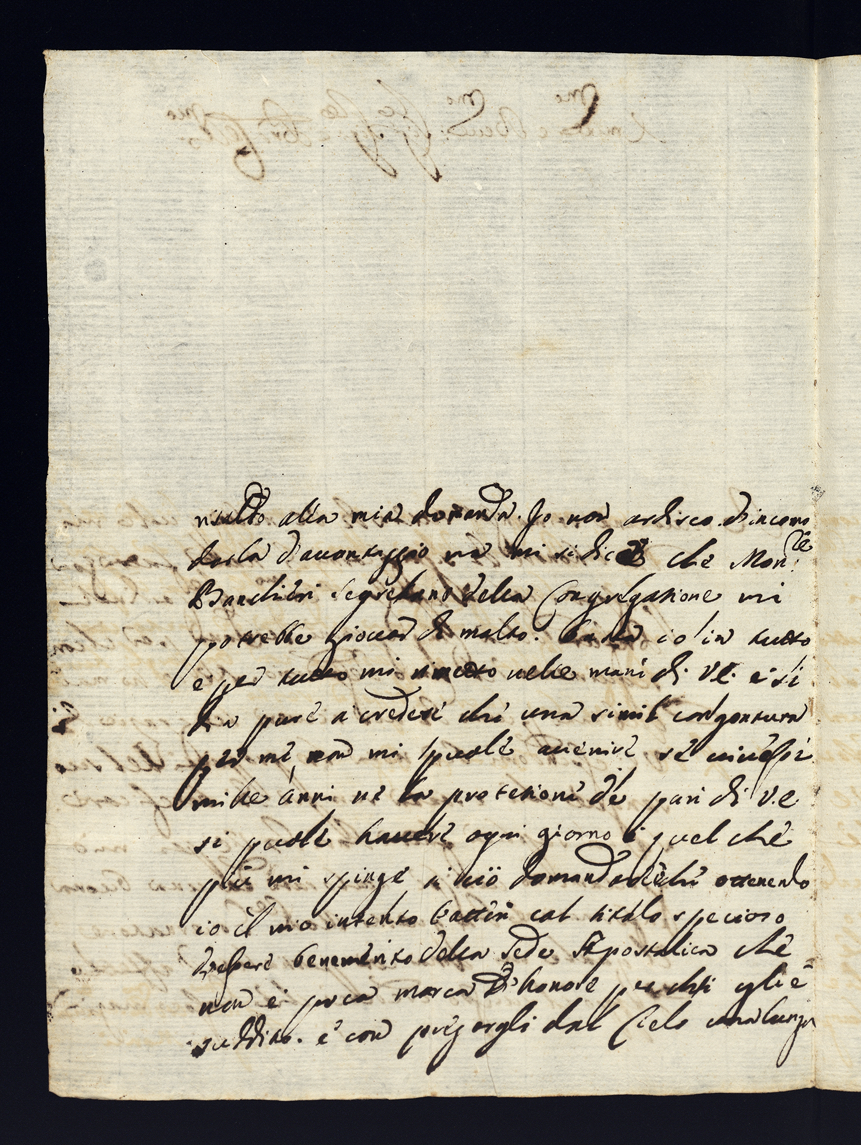 alla mia domanda. Io non ardisco d'incomo
darla d'avantaggio ma mi si dice che Mon.
Banchieri Segretario della Congregatione mi
potrebbe giovar di molto. io in tutto
e per tutto mi rimetto nelle mani di V.E. e si
pure a credere che una simil congontura
per me non mi puole avenire se
mille anni ne la protetione de pari di V.E.
si puole havere ogni giorno quel che
più mi spinge a ciò domandare è che ottenendo
io il mio intento col titolo specioso
d'essere benemerito della Sede Apostolica che
non è poca marca d'honore per chi gli è
suddito. e con pregargli dal Cielo una lunga